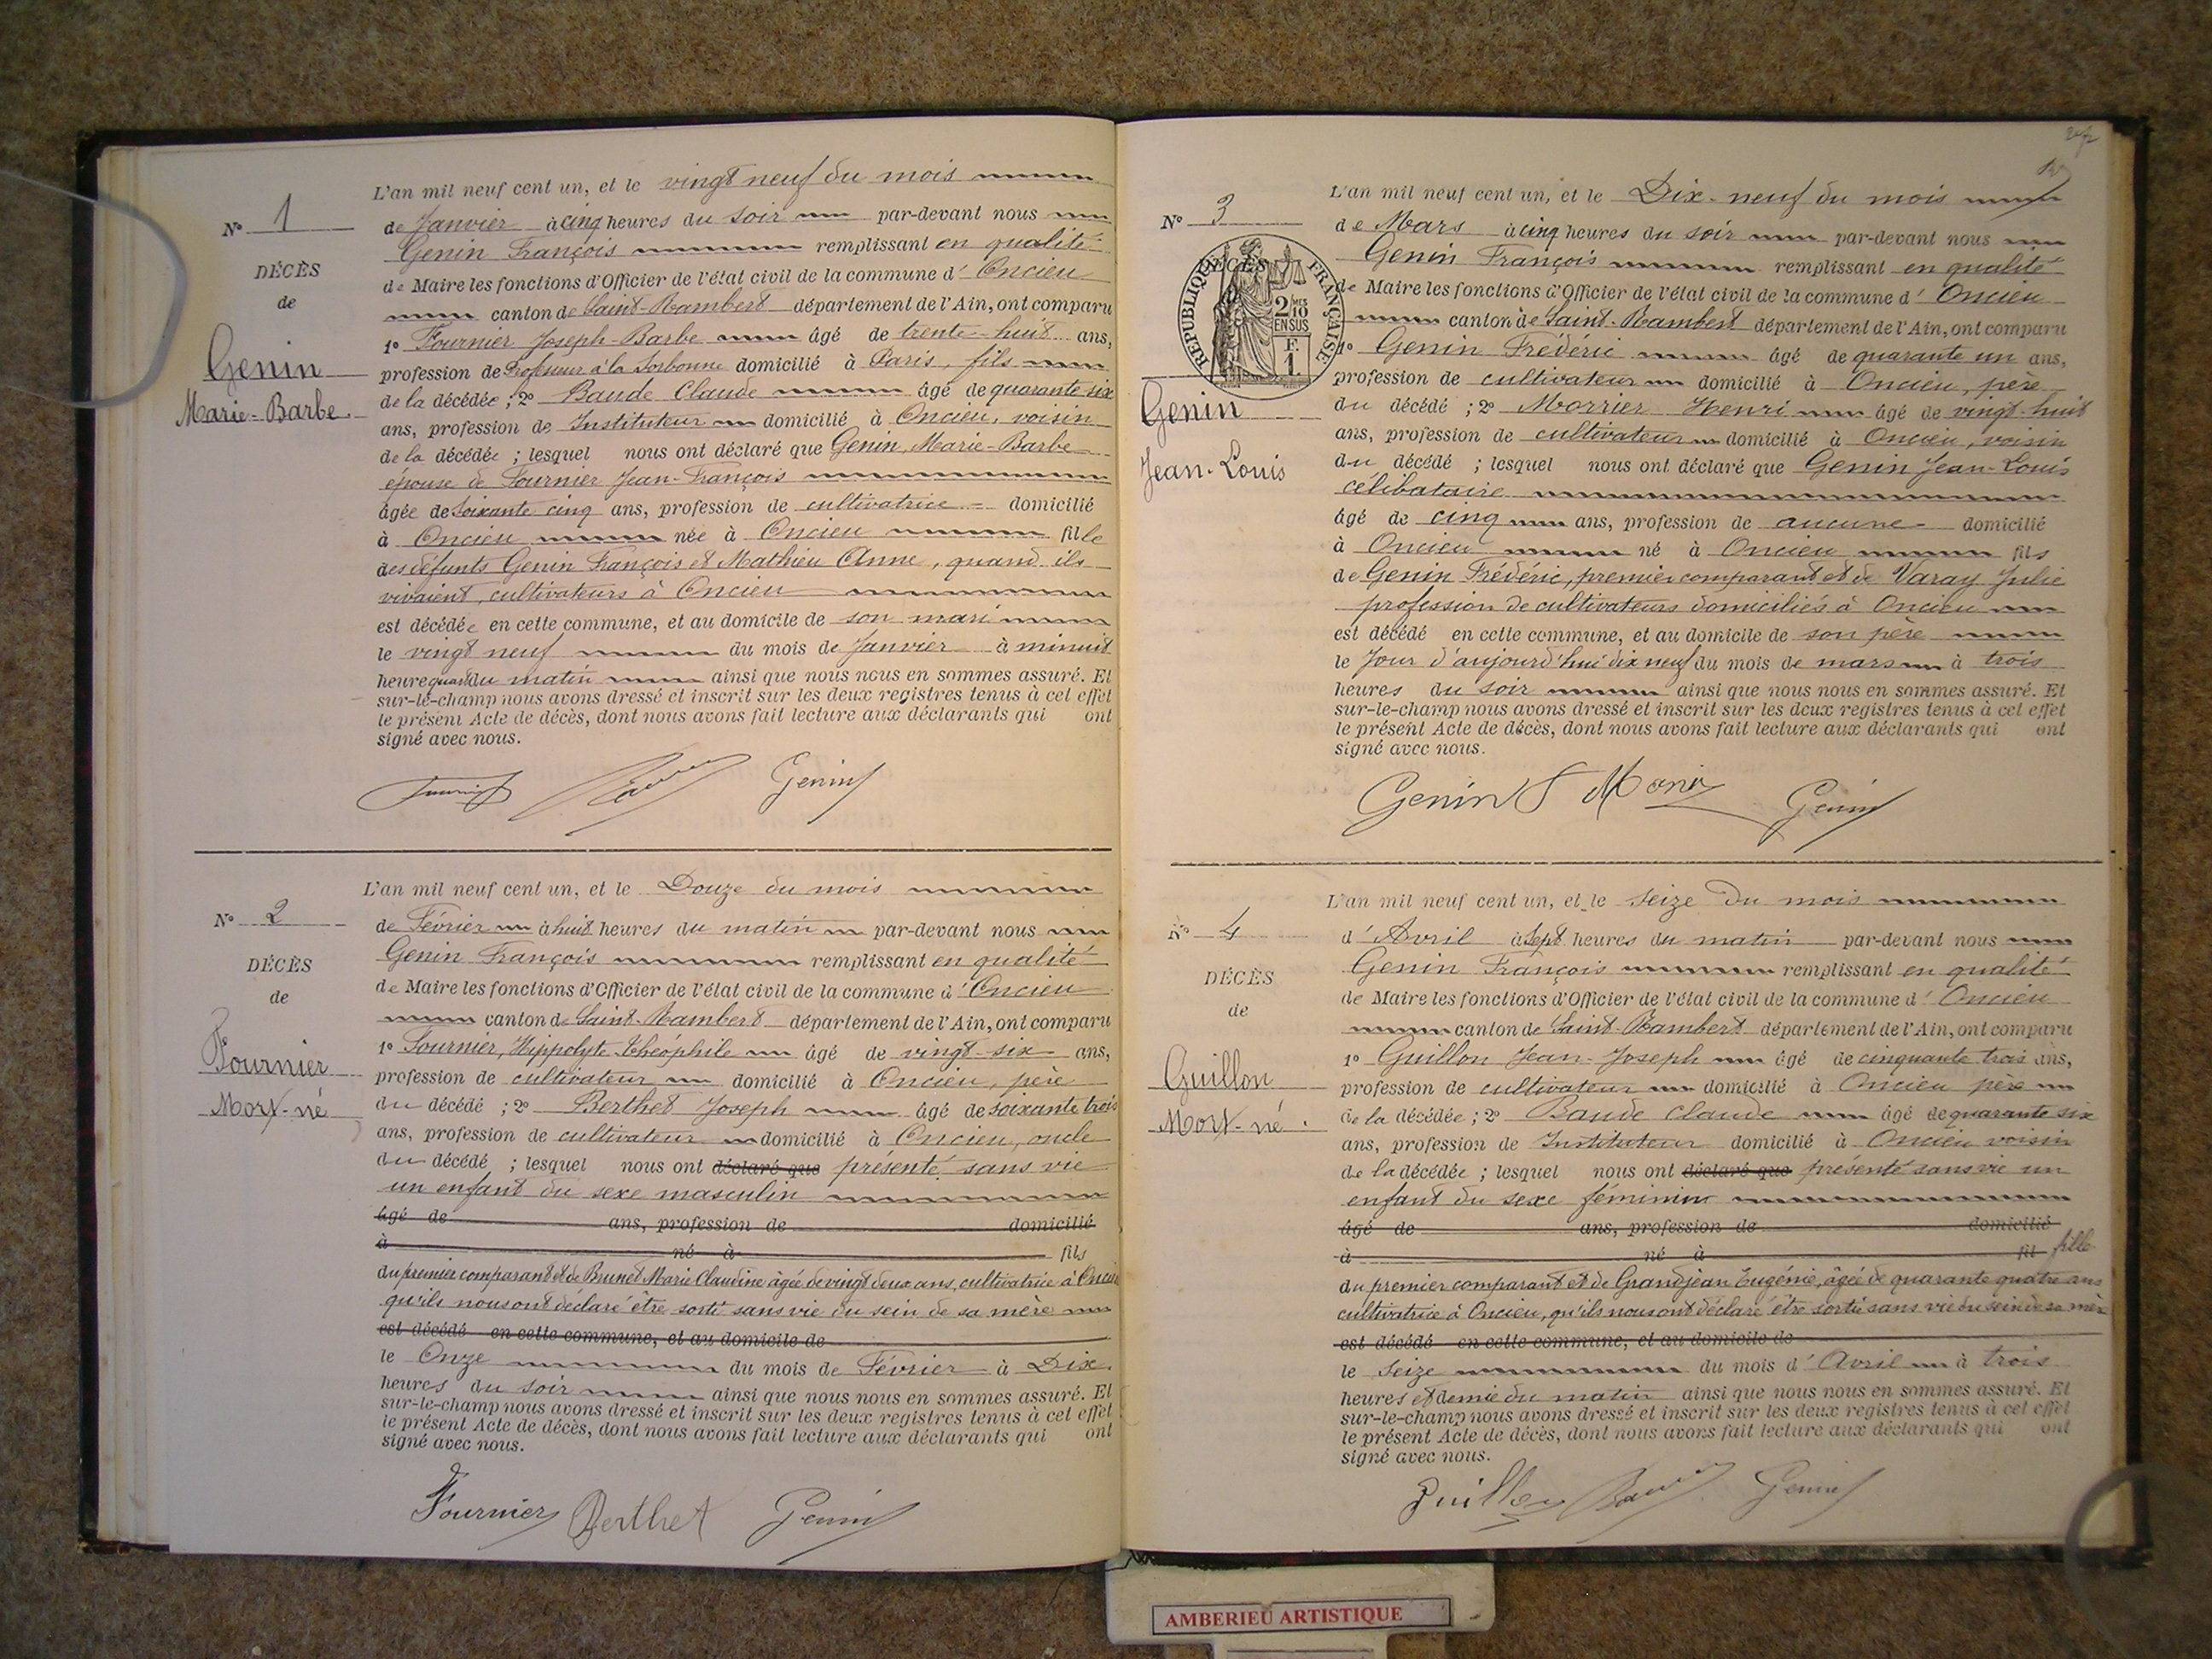 L'an mil neuf cent un, et le vingt neuf du mois
Nº 1
de Janvier à cinq heures du soir par-devant nous
Genin François remplissant en qualité
DÉCÈS
de Maire les fonctions d'Officier de l'état civil de la commune d' Oncieu
de
canton de Saint-Rambert département de l'Ain, ont comparu
1º Fournier Joseph-Barbe âgé de trente-huit ans,
Genin
profession de Professeur à la Sorbonne domicilié à Paris, fils
Marie-Barbe
de la décédée ; 2º Baude Claude âgé de quarante six
ans, profession de Instituteur domicilié à Oncieu, voisin
de la décédée ; lesquel nous ont déclaré que Genin Marie-Barbe
épouse de Fournier Jean-François
âgée de soixante cinq ans, profession de cultivatrice domicilié
à Oncieu née à Oncieu fille
des défunts Genin François et Mathieu Anne, quand ils
vivaient, cultivateurs à Oncieu
est décédée en cette commune, et au domicile de son mari
le vingt neuf du mois de Janvier à minuit
heure du matin ainsi que nous nous en sommes assuré. Et
sur-le-champ nous avons dressé et inscrit sur les deux registres tenus à cet effet
le présent Acte de décès, dont nous avons fait lecture aux déclarants qui ont
signé avec nous.
Genin
L'an mil neuf cent un, et le Douze du mois
Nº 2
de Février à huit heures du matin par-devant nous
Genin François remplissant en qualité
DÉCÈS
de Maire les fonctions d'Officier de l'état civil de la commune d' Oncieu
de
canton de Saint-Rambert département de l'Ain, ont comparu
1º Fournier, Hippolyte-Théophile âgé de vingt-six ans,
Fournier
profession de cultivateur domicilié à Oncieu, père
Mort-né
du décédé ; 2º Berthet Joseph âgé de soixante trois
ans, profession de cultivateur domicilié à Oncieu, oncle
du décédé ; lesquel nous ont déclaré que présenté sans vie
un enfant du sexe masculin
âgé de ans, profession de domicilié
à né à fils
du premier comparant et de Brunet Marie Claudine âgée de vingt deux ans, cultivatrice à Oncieu
qu'ils nous ont déclaré être sorti sans vie du sein de sa mère
est décédé en cette commune, et au domicile de
le Onze du mois de Février à Dix
heures du soir ainsi que nous nous en sommes assuré. Et
sur-le-champ nous avons dressé et inscrit sur les deux registres tenus à cet effet
le présent Acte de décès, dont nous avons fait lecture aux déclarants qui ont
signé avec nous.
Fournier Berthet Genin
L'an mil neuf cent un, et le Dix-neuf du mois
Nº 3
de Mars à cinq heures du soir par-devant nous
Genin François remplissant en qualité
DÉCÈS
RÉPUBLIQUE FRANÇAISE
2/10 MES
EN SUS
F.
1.
de Maire les fonctions d'Officier de l'état civil de la commune d' Oncieu
canton de Saint-Rambert département de l'Ain, ont comparu
1º Genin Frédéric âgé de quarante un ans,
profession de cultivateur domicilié à Oncieu, père
Genin
du décédé ; 2º Morrier Henri âgé de vingt-huit
ans, profession de cultivateur domicilié à Oncieu, voisin
Jean-Louis
du décédé ; lesquel nous ont déclaré que Genin Jean-Louis
celibataire
âgé de cinq ans, profession de aucune domicilié
à Oncieu né à Oncieu fils
de Genin Frédéric, premier comparant et de Varay Julie
profession de cultivateurs domiciliés à Oncieu
est décédé en cette commune, et au domicile de son père
le Jour d'aujourd'hui dix neuf du mois de mars à trois
heures du soir ainsi que nous nous en sommes assuré. Et
sur-le-champ nous avons dressé et inscrit sur les deux registres tenus à cet effet
le présent Acte de décès, dont nous avons fait lecture aux déclarants qui ont
signé avec nous.
Genin F Genin
L'an mil neuf cent un, et le seize du mois
Nº 4
d'Avril à Sept heures du matin par-devant nous
Genin François remplissant en qualité
DÉCÈS
de Maire les fonctions d'Officier de l'état civil de la commune d' Oncieu
de
canton de Saint-Rambert département de l'Ain, ont comparu
1º Guillon Jean-Joseph âgé de cinquante trois ans,
Guillon
profession de cultivateur domicilié à Oncieu père
Mort-né.
de la décédée ; 2º Baude Claude âgé de quarante six
ans, profession de Instituteur domicilié à Oncieu voisin
de la décédée ; lesquel nous ont déclaré que présenté sans vie un
enfant du sexe féminin
âgé de ans, profession de domicilié
à né à fil fille
du premier comparant et de Grandjean Eugénie, âgée de quarante quatre ans
cultivatrice à Oncieu, qu'ils nous ont déclaré être sortie sans vie du sein de sa mère
est décédé en cette commune, et au domicile de
le seize du mois d'Avril à trois
heures et demie du matin ainsi que nous nous en sommes assuré. Et
sur-le-champ nous avons dressé et inscrit sur les deux registres tenus à cet effet
le présent Acte de décès, dont nous avons fait lecture aux déclarants qui ont
signé avec nous.
Guillon Genin
AMBERIEU ARTISTIQUE